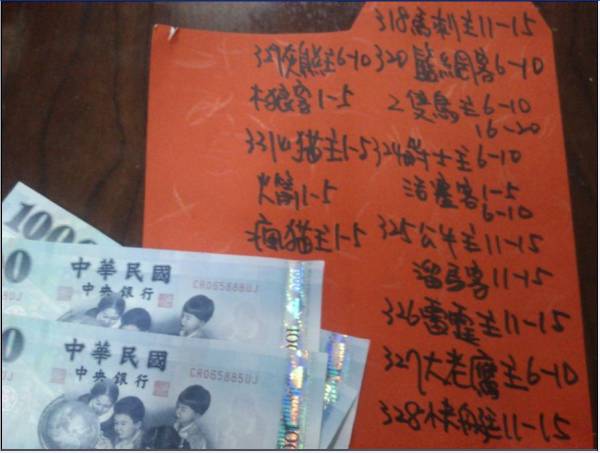 318馬刺主11-15
320籃網客6-10
2隻鳥主6-10
16-20
324爵士主6-10
活塞客1-5
6-10
325公牛主11-15
溜馬客11-15
326雷霆主11-15
327大老鷹主6-10
328快艇主11-15
329灰熊主6-10
木狼客1-5
331山猫主1-5
火箭1-5
瘋猫主1-5
1000
0
中華民國
中央銀行
CR065888UJ
0
中華民國
中央銀行
CR065885UJ